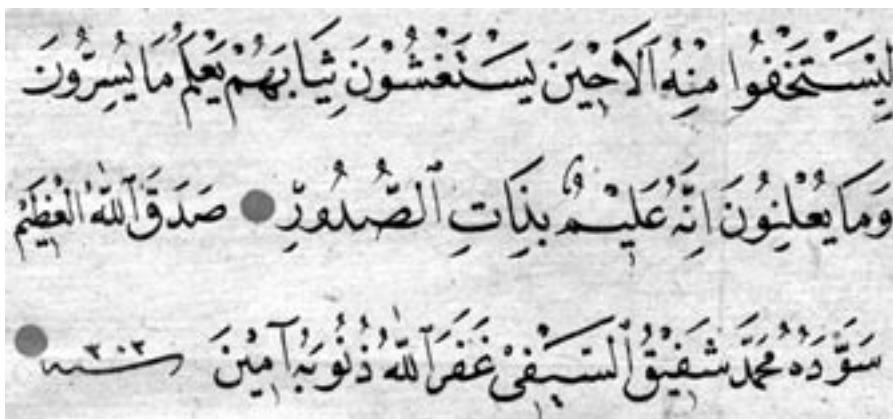 لِيَسْتَخْفُوا مِنْهُ اَلَا حِيْنَ يَسْتَغْشُوْنَ ثِيَابَهُمْ يَعْلَمُ مَا يُسِرُّونَ
وَمَا يُعْلِنُونَ اِنَّهُ عَلِيْمٌ بِذَاتِ ٱلصُّدُورِ صَدَقَ ٱللّٰهُ الْعَظِيْمُ
سَوَّدَهُ مُحَمَّدْ شَفِيْقُ ٱلسَّيْفِىْ غَفَرَ ٱللّٰهُ ذُنُوبَهُ آمِيْنَ سنه ١٣٠٣